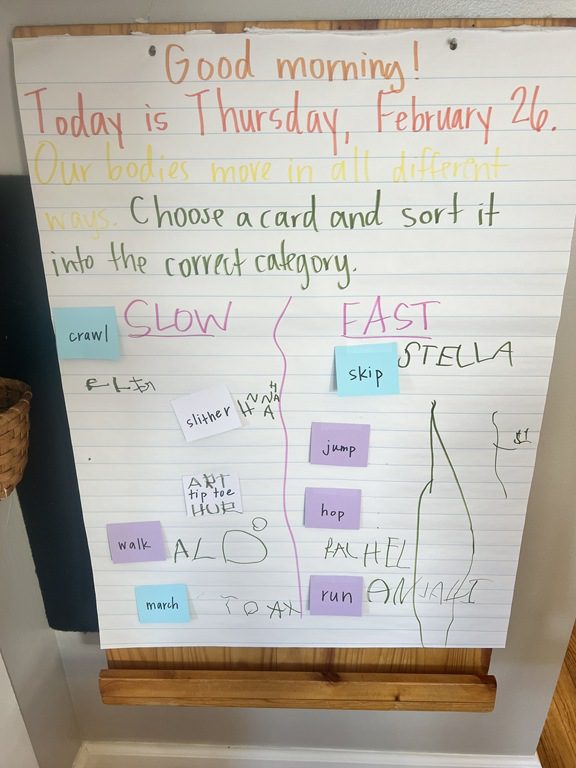 Good morning!
Today is Thursday, February 26.
Our bodies move in all different
ways. Choose a card and sort it
into the correct category.
SLOW
FAST
crawl
skip
STELLA
slither
HANNAH
jump
ART
tip toe
HUR
hop
walk
ALDO
RACHEL
march
run
ANJALI